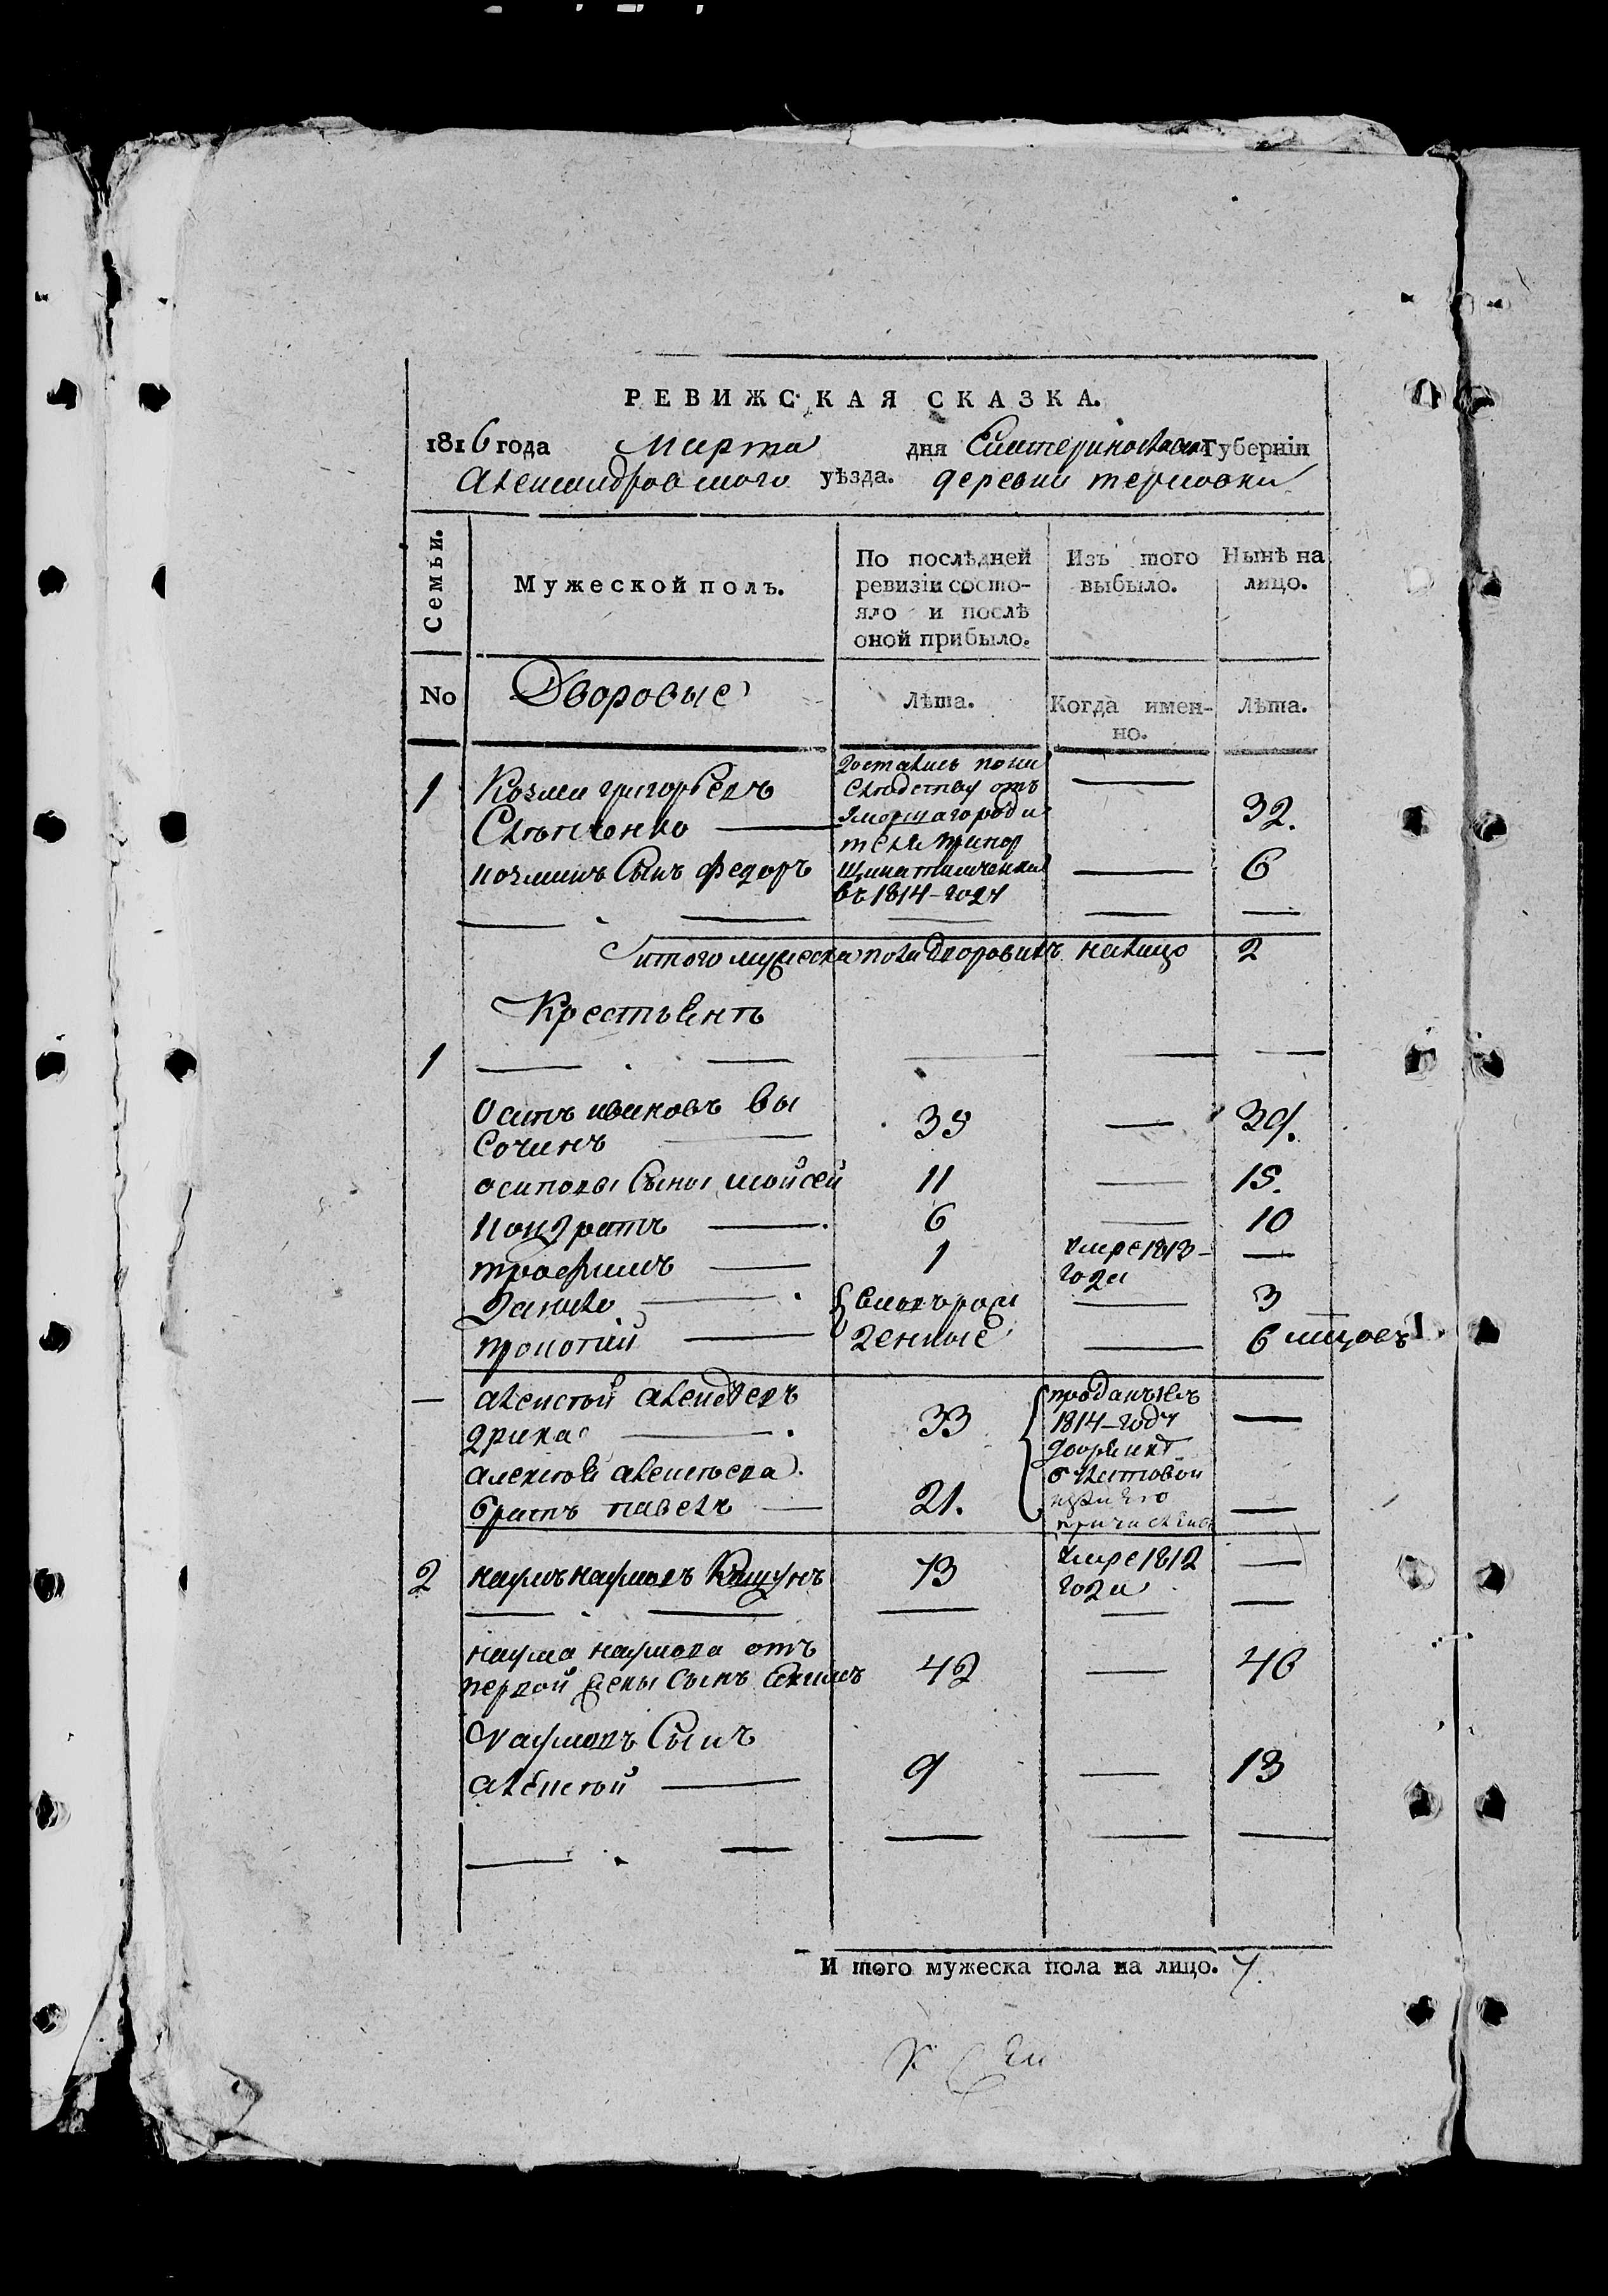 РЕВИЖСКАЯ СКАЗКА.
1816 года Марта дня Екатеринославской Губерніи
Александровского уѣзда. деревни терновки
Семьи.
Мужеской полъ.
По послѣдней ревизіи состо-
яло и послѣ
оной прибыло.
Изъ того
выбыло.
Нынѣ на
лицо.
No
Дворовые
Лѣта.
Когда имен-
но.
Лѣта.
1 Козма григорьевъ
достались пона
следству отъ
умершагороди
теля
въ 1814-году
—
32.
козминъ Сынъ Федоръ — 6
итого мужеска пола дворовыхъ налицо 2
Крестьянъ
1
Осипъ ивановъ вы
сочинъ — 35 — 39.
осиповы Сыны мойсей 11 — 15.
кондратъ — 6 — 10
трофимъ — 1 умре 1813- —
года
Данило — вновърож — 3
прокотий — денные — 6 мцовъ
— алексей
33
проданы въ
1814-году
—
алексея алексеева
братъ павелъ — 21. —
2 наумъ наумовъ 73 умре 1812 —
года
наума наумова отъ
первой жены Сынъ екимъ 42 — 46
наумовъ Сынъ
алексей — 9 — 13
И того мужеска пола на лицо. 7.